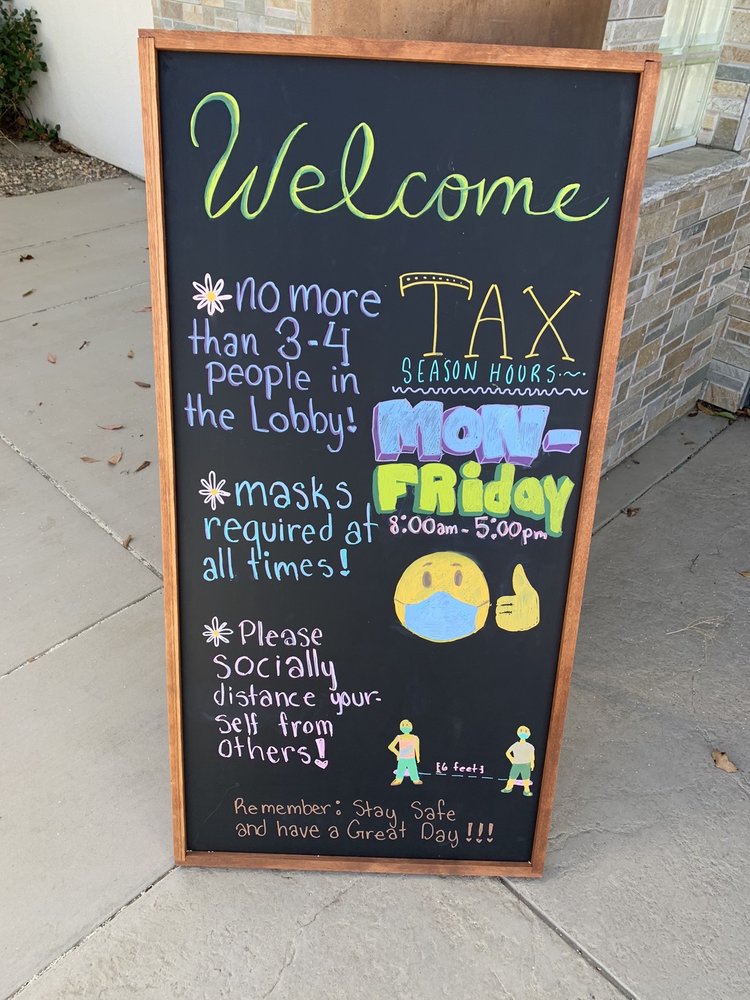 Welcome
no more
than 3-4
people in
the Lobby!
masks
required at
all times!
Please
socially
distance your-
self from
others!
TAX
SEASON HOURS
MON-
FRiday
8:00am - 5:00pm
[6 feet]
Remember: Stay Safe
and have a Great Day!!!